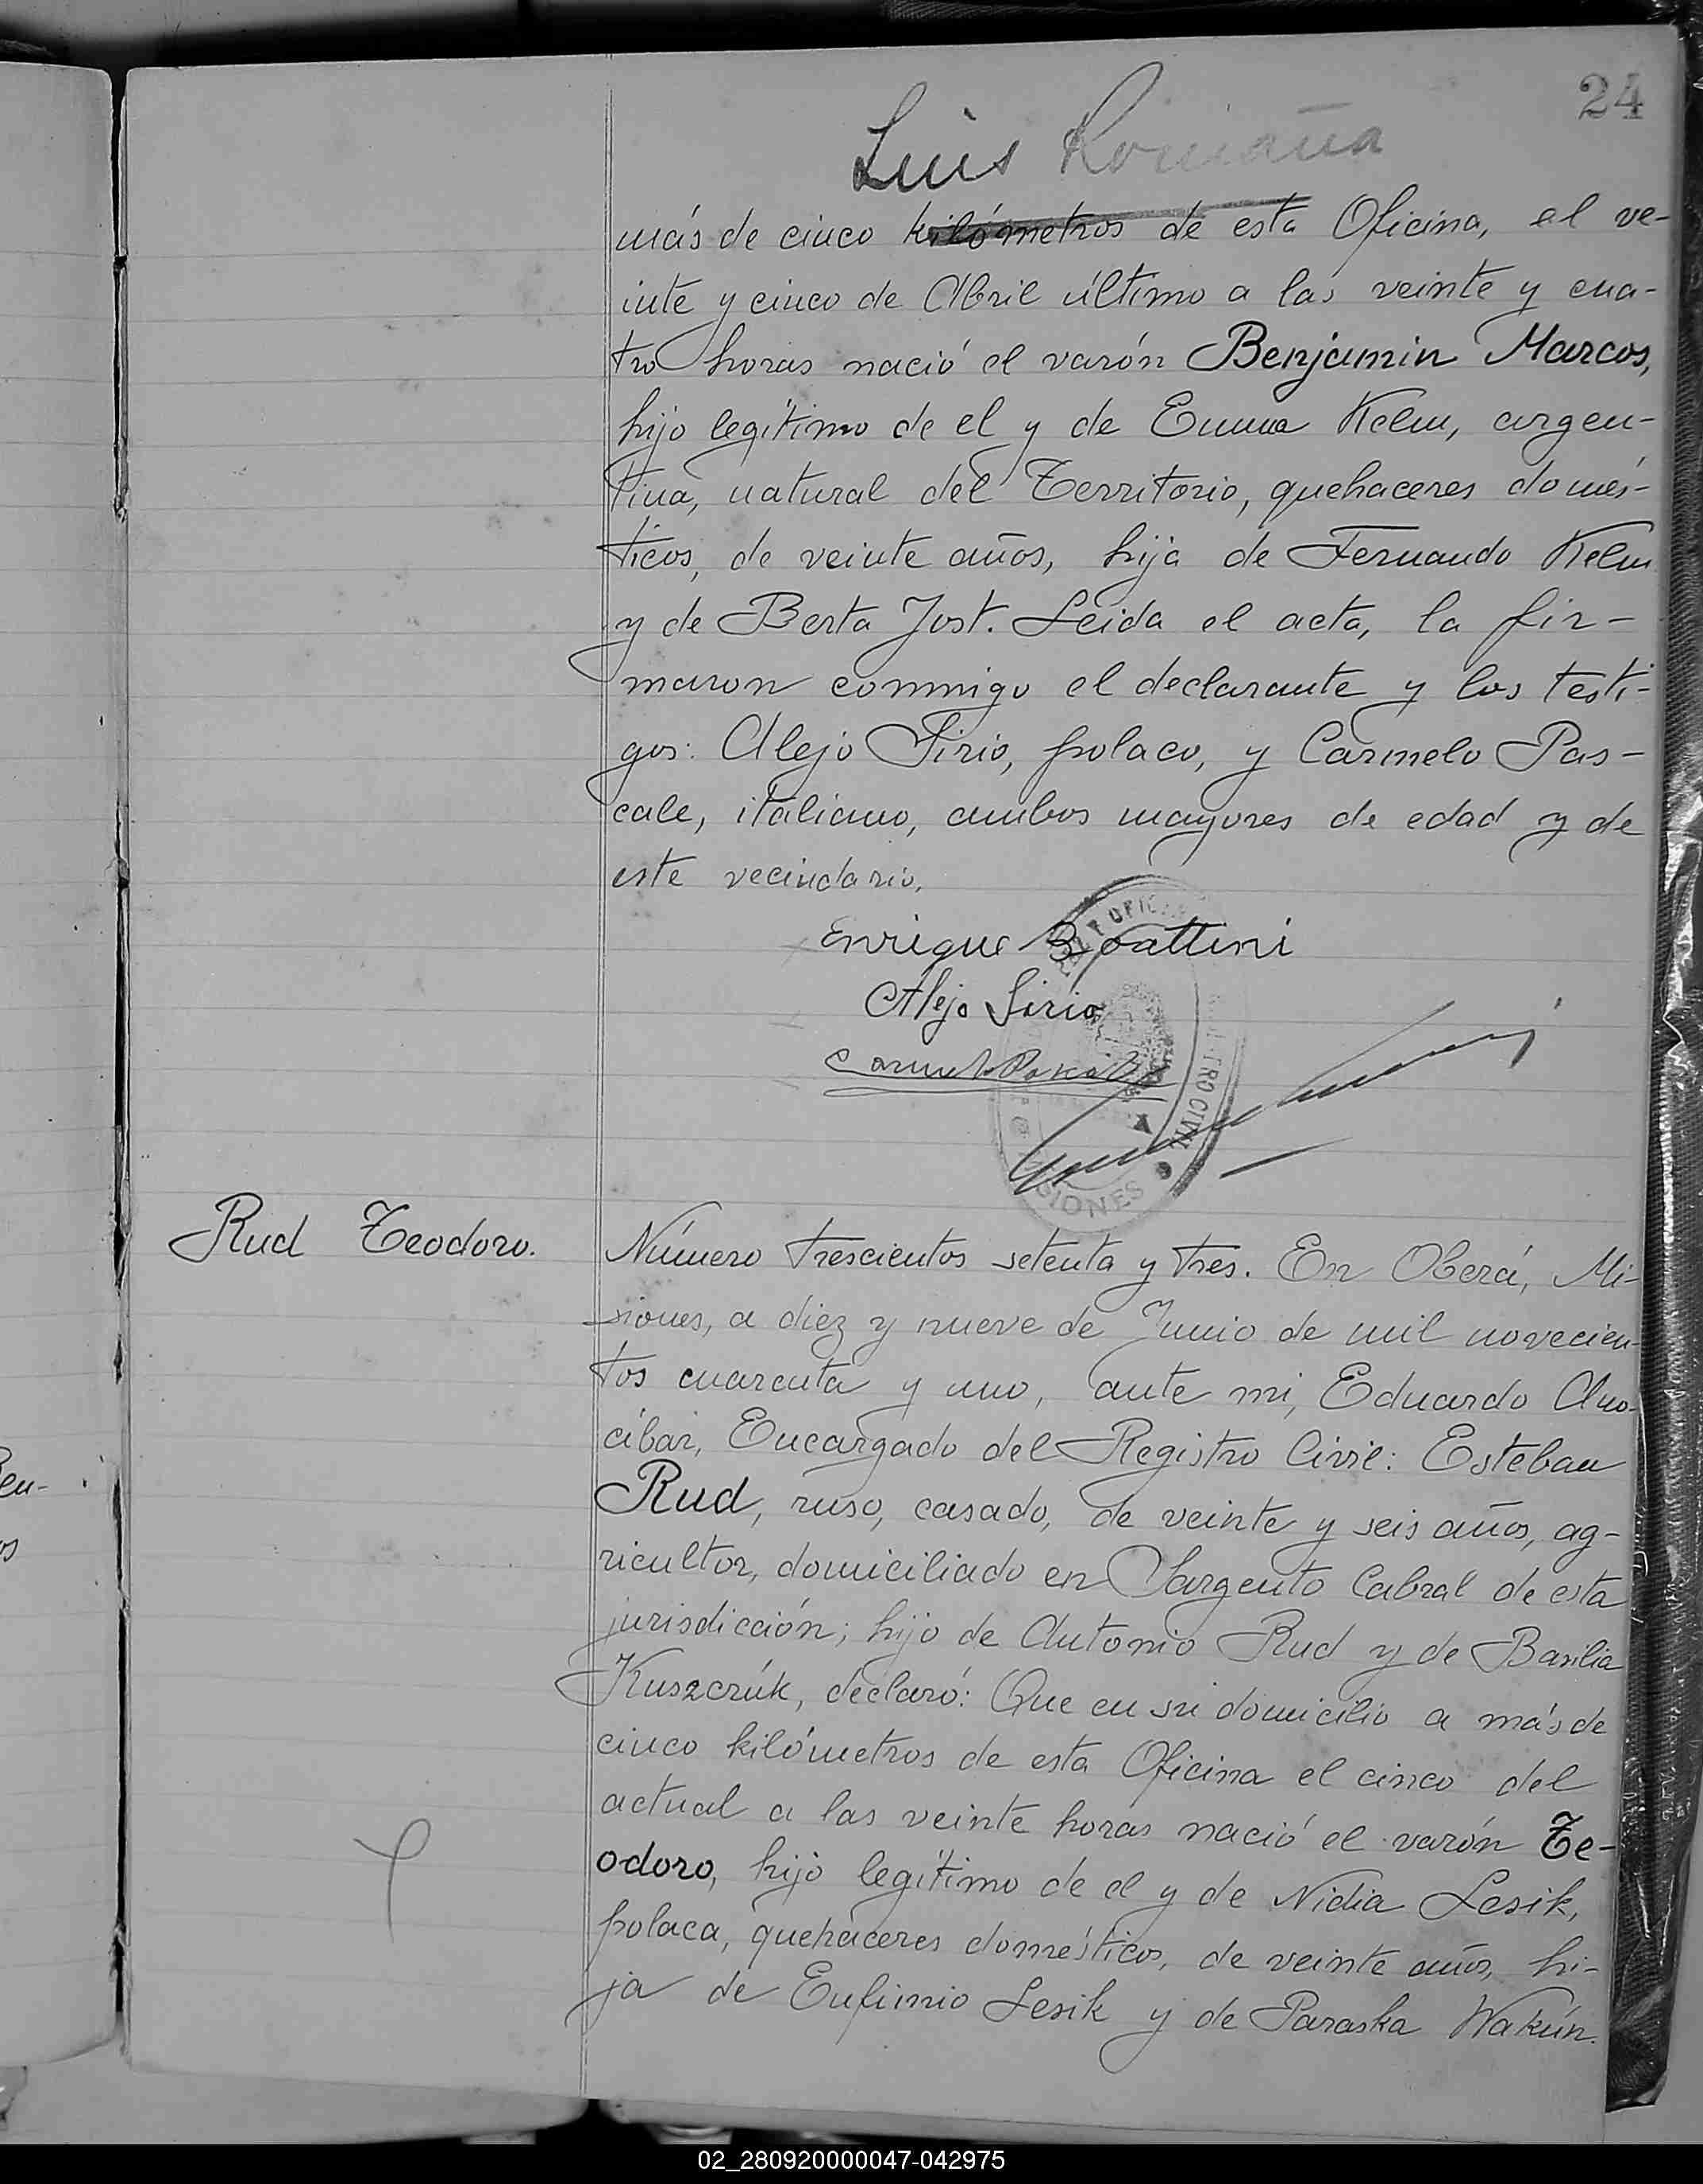 24
Luis Romaña
más de cinco kilómetros de esta Oficina, el ve-
inte y cinco de Abril último a las veinte y cua-
tro horas nació el varón Benjamin Marcos,
hijo legítimo de el y de Emma Kelm, argen-
tina, natural del Territorio, quehaceres domés-
ticos, de veinte años, hija de Fernando Kelm
y de Berta Jost. Leida el acta, la fir-
maron conmigo el declarante y los testi-
gos: Alejo Sirio, polaco, y Carmelo Pas-
cale, italiano, ambos mayores de edad y de
este vecindario.
Enrique Boattini
Alejo Sirio
MISIONES
Rud Teodoro.
Número trescientos setenta y tres. En Oberá, Mi-
siones, a diez y nueve de Junio de mil novecien-
tos cuarenta y uno, ante mi, Eduardo Ano-
cíbar, Encargado del Registro Civil: Esteban
Rud, ruso, casado, de veinte y seis años, ag-
ricultor, domiciliado en Sargento Cabral de esta
jurisdicción; hijo de Antonio Rud y de Basilia
Kuszcrúk, declaró: Que en su domicilio a más de
cinco kilómetros de esta Oficina el cinco del
actual a las veinte horas nació el varón Te-
odoro, hijo legítimo de el y de Nidia Lesik,
polaca, quehaceres domésticos, de veinte años, hi-
ja de Eufimio Lesik y de Paraska Wakún.
en-
os
02_280920000047-042975